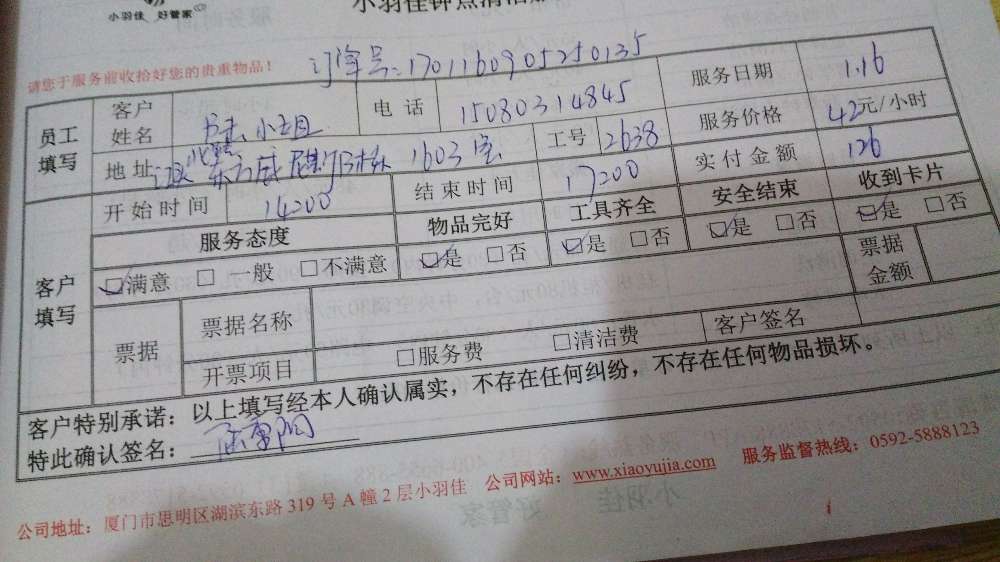 小羽佳 好管家
小羽佳钟点清洁
请您于服务前收拾好您的贵重物品！
订单号：1701160905250135
员工填写 客户姓名 小姐 电话 15080314845 服务日期 1.16
地址 1603室 工号 2638 服务价格 42元/小时
开始时间 14:00 结束时间 17:00 实付金额 126
客户填写 服务态度 物品完好 工具齐全 安全结束 收到卡片
☑满意 □一般 □不满意 ☑是 □否 ☑是 □否 ☑是 □否 ☑是 □否
票据 票据名称 票据金额
开票项目 □服务费 □清洁费 客户签名
客户特别承诺：以上填写经本人确认属实，不存在任何纠纷，不存在任何物品损坏。
特此确认签名：
公司地址：厦门市思明区湖滨东路319号A幢2层小羽佳 公司网站：www.xiaoyujia.com 服务监督热线：0592-5888123